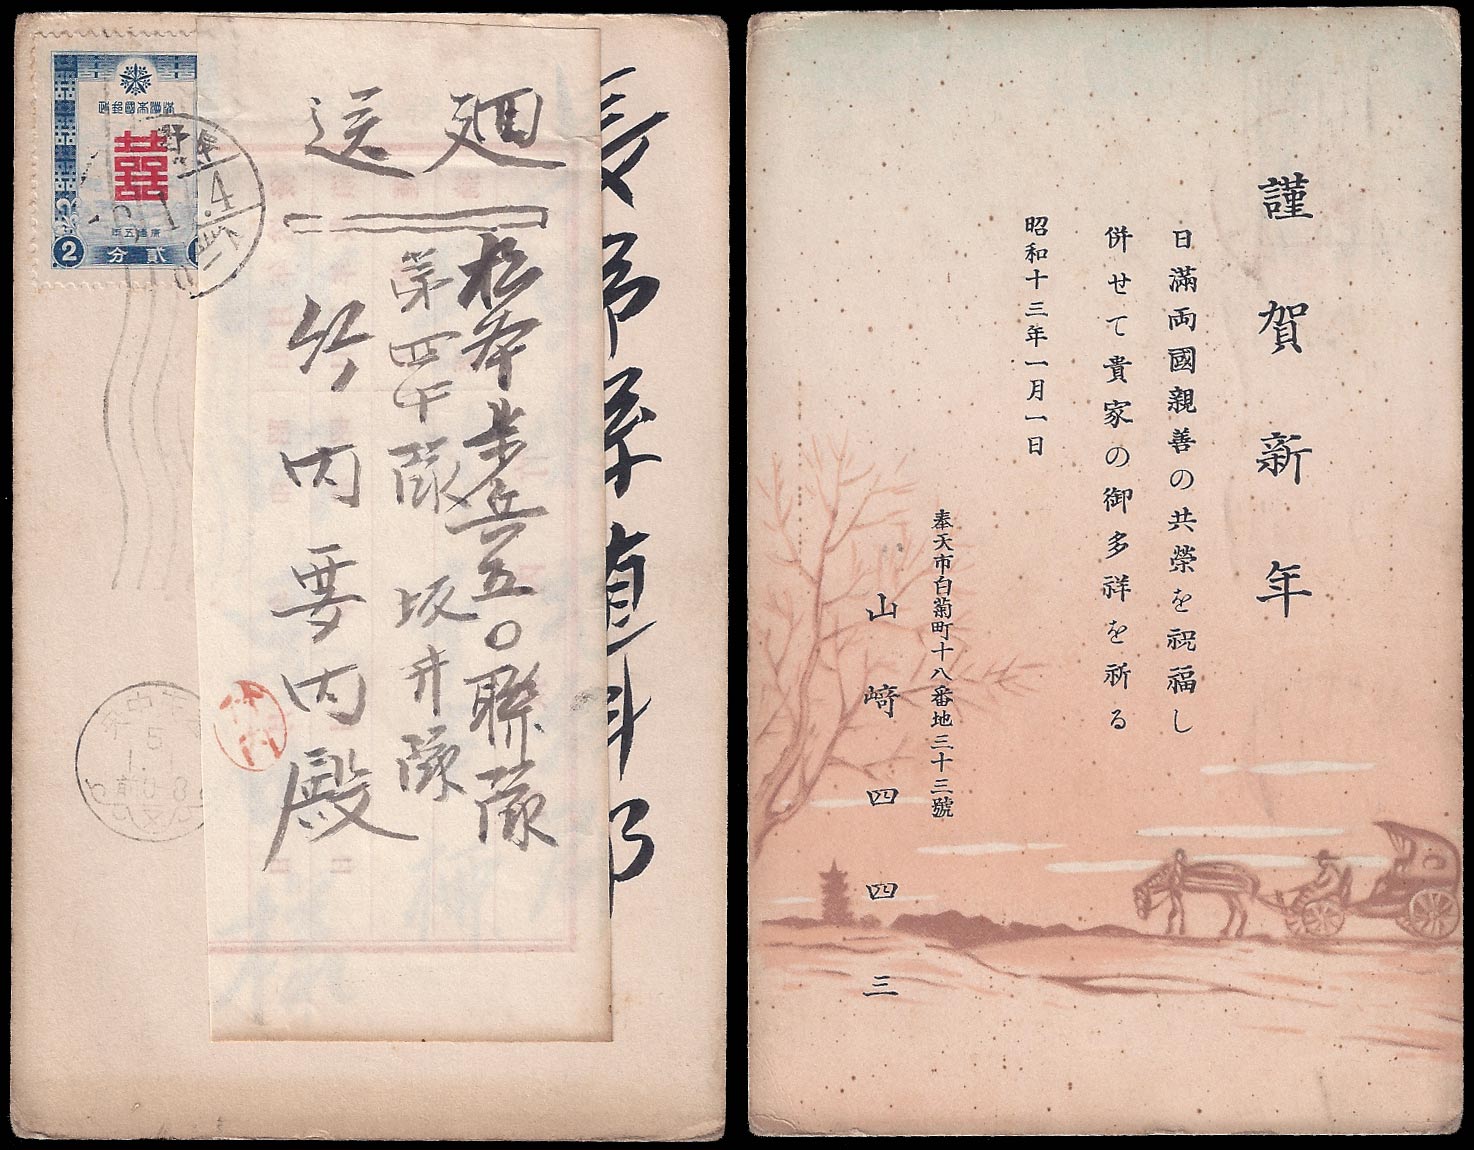 満洲帝國郵政
囍
康徳五年
2
貳分
長野縣埴科郡
廻送
松本歩兵五〇聯隊
第四中隊 坂井隊
竹内要内殿
竹内
謹賀新年
日滿両國親善の共榮を祝福し
併せて貴家の御多祥を祈る
昭和十三年一月一日
奉天市白菊町十八番地三十三號
山﨑四四三